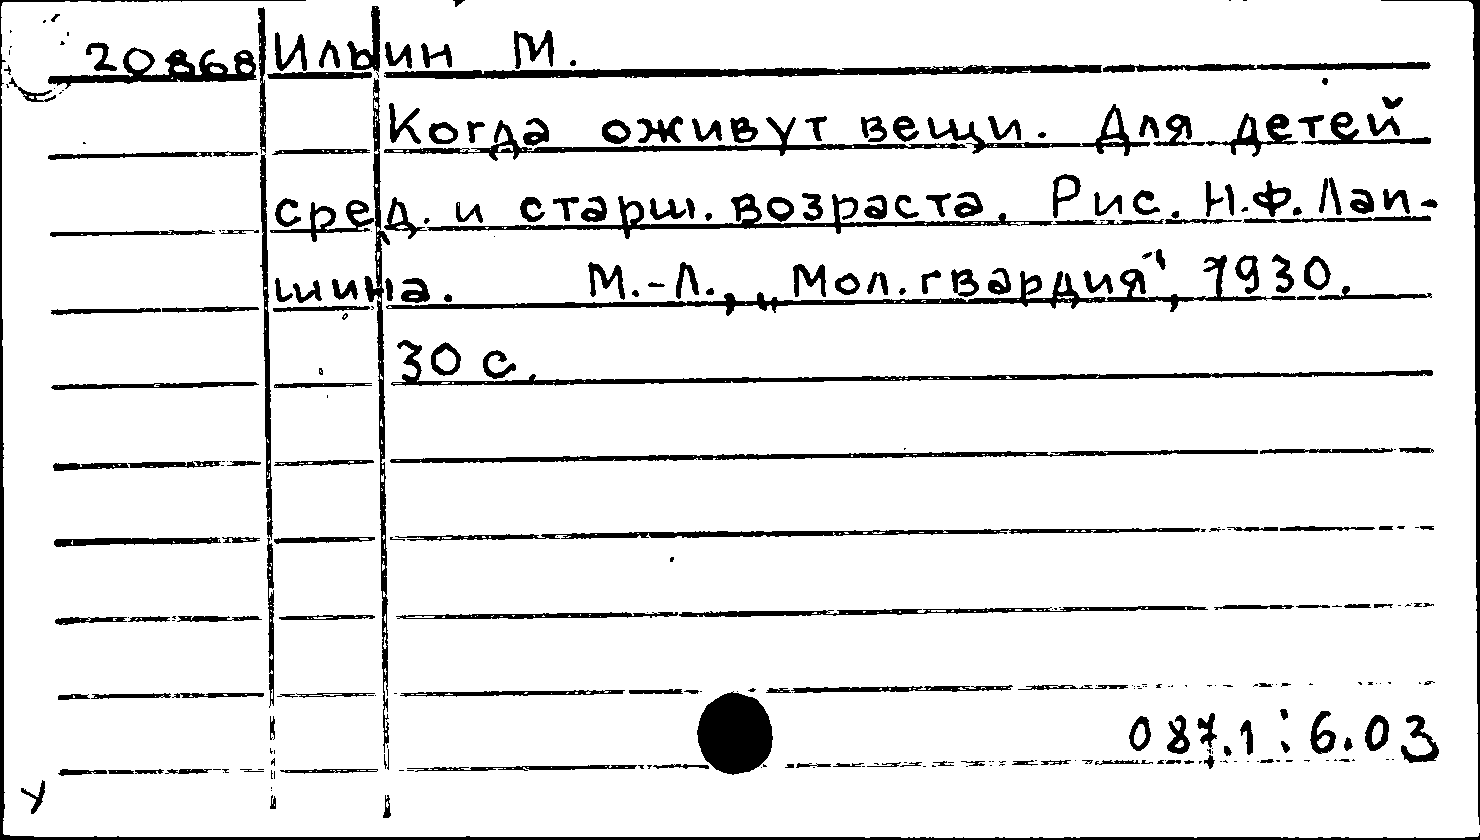 20868 Ильин М.
Когда оживут вещи. Для детей
сред. и старш. возраста. Рис. Н.Ф. Лап-
шина. М.-Л., „Мол. гвардия“, 1930.
30 с.
087.1:6.03
У